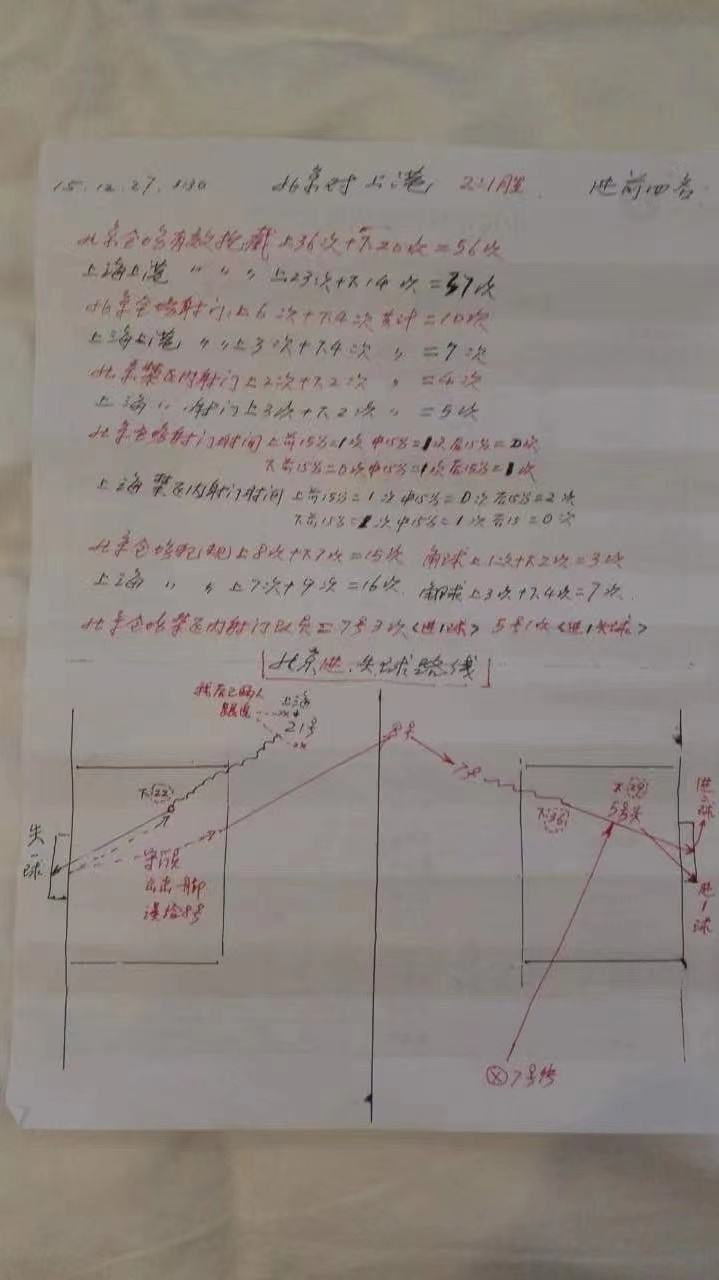 15.12.27. 北京对上港, 2:1胜. 进前四名
北京全场有效抢截上36次+下20次=56次
上海上港 〃 〃 〃 上23次+下14次=37次
北京全场射门上6次+下4次共计=10次
上海上港, 〃 〃 上3次+下4次 〃 =7次
北京禁区内射门上2次+下2次 〃 =4次
上海 〃 射门上3次+下2次 〃 =5次
北京全场射门时间上前15分=1次中15分=1次后15分=0次
下前15分=0次中15分=1次后15分=1次
上海禁区内射门时间上前15分=1次中15分=0次后15分=2次
下前15分=1次中15分=1次后15=0次
北京全场犯规上8次+下7次=15次 角球上1次+下2次=3次
上海 〃 〃 上7次+9次=16次. 角球上3次+下4次=7次.
北京全场禁区内射门队员=7号3次<进1球> 5号1次<进1头球>
北京进.失球路线
我左己 人
上海
21号
8号
7号
下(22)
下(36)
下(29)
5号头
进2球
失一球
守门员
出击 脚
漫给8号
进1球
7号传